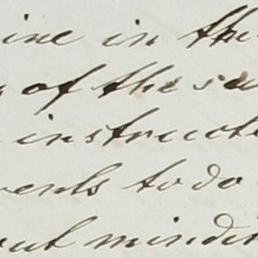 ine in the
of the sa
instructo
vents to do
out mindin